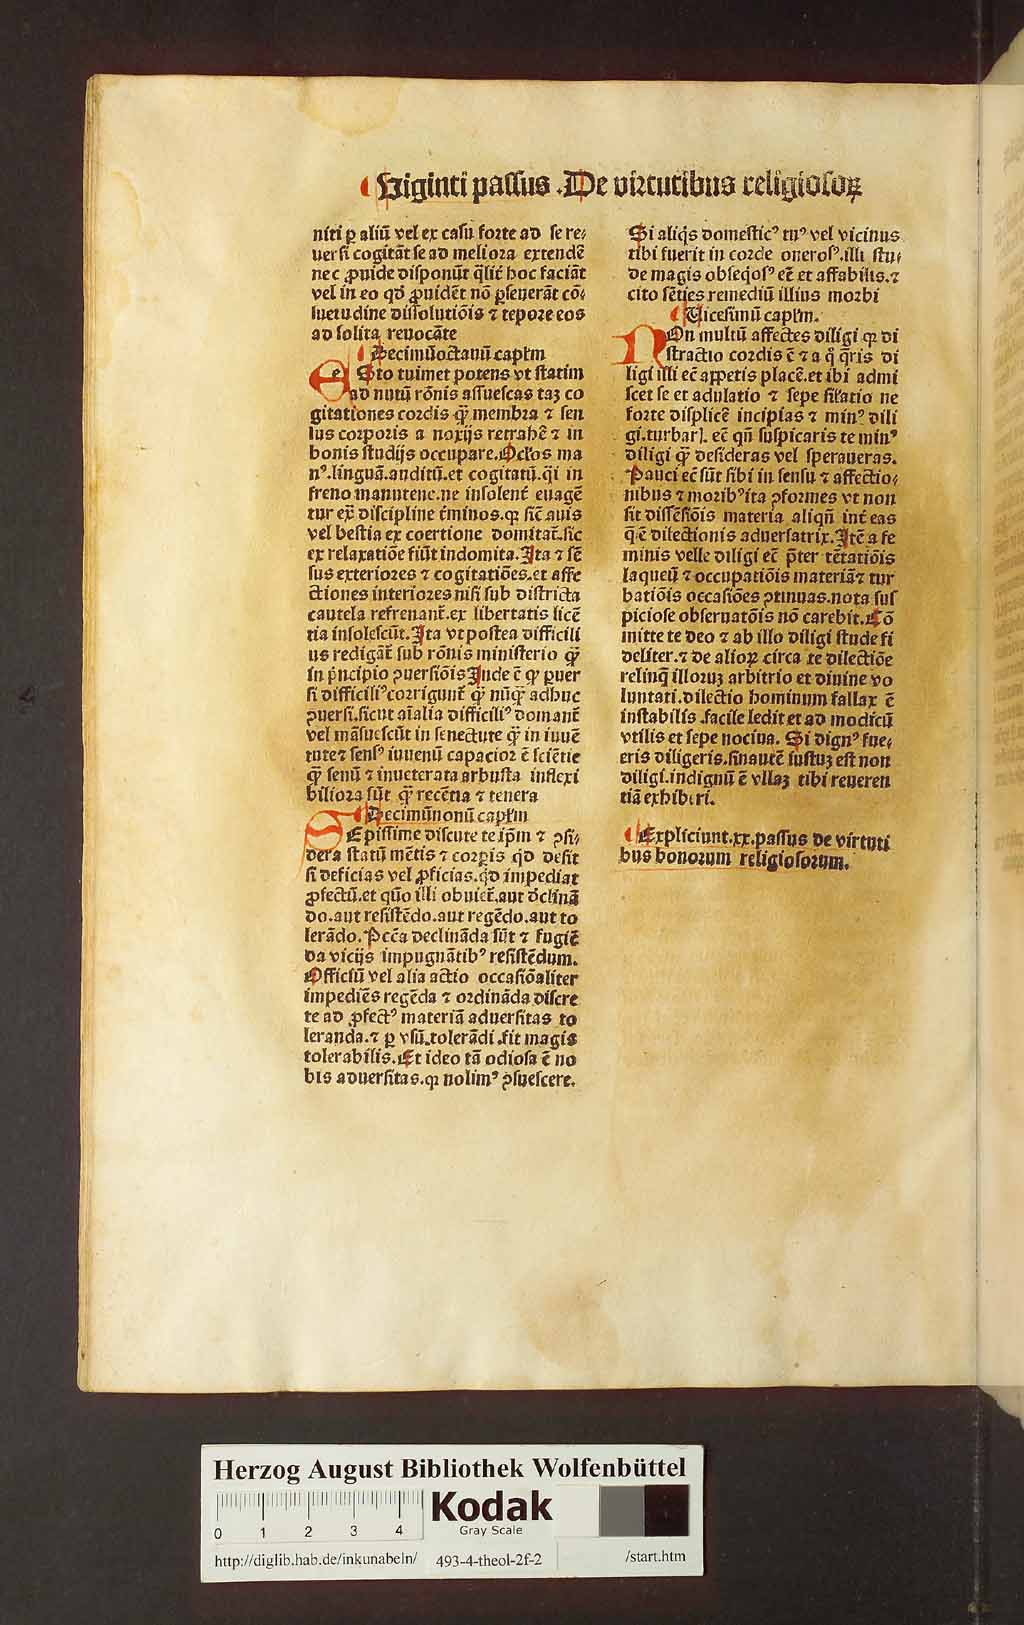 Viginti passus .De virtutibus religiosoꝝ
niti ꝑ aliū vel ex casu forte ad se re⸗
uersi cogitāt se ad meliora extendē
nec ꝓuide disponūt q̄lit̄ hoc faciāt
vel in eo qd̄ ꝓuidēt nō ꝑseuerāt cō⸗
suetudine dissolutiōis ⁊ tepore eos
ad solita reuocāte
Decimūoctauū capłm
eSto tuimet potens vt statim
ad nutū rōnis assuescas taꝫ co
gitationes cordis q̄ꝫ membra ⁊ sen
sus corporis a noxijs retrahē ⁊ in
bonis studijs occupare.Oclos ma
nꝰ.linguā.auditū.et cogitatū.q̄i in
freno manutene.ne insolenť euagē
tur ext̄ discipline ťminos.qꝛ sic̄ auis
vel bestia ex coertione domitat̄.sic
ex relaxatiōe fiūt indomita.Ita ⁊ sē
sus exteriores ⁊ cogitatiōes.et affe
ctiones interiores nisi sub districta
cautela refrenant̄.ex libertatis licē
tia insolescūt.Ita vt postea difficili
us redigāt̄ sub rōnis ministerio q̄ꝫ
in p̄ncipio ꝯuersiōis Inde ē qꝛ ꝑuer
si difficiliꝰ corrigunt̄ q̄ꝫ nūq̄ꝫ adhuc
ꝯuersi.sicut aīalia difficiliꝰ domant̄
vel māsuescūt in senectute q̄ꝫ in iuuē
tute ⁊ sensꝰ iuuenū capacior ē sciētie
q̄ꝫ senū ⁊ inueterata arbusta inflexi
biliora sūt q̄ꝫ recētia ⁊ tenera
Decimūnonū capłm
SEpissime discute te ip̄m ⁊ ꝯsi⸗
dera statū mētis ⁊ corꝑis qd̄ desit
si deficias vel ꝓficias.qd̄ impediat
ꝓfectū.et quō illi obuiet̄.aut d̄clinā
do.aut resistēdo.aut regēdo.aut to
lerādo.Pccā declināda sūt ⁊ fugiē
da vicijs impugnātibꝰ resistēdum.
Officiū vel alia actio occasiōaliter
impediēs regēda ⁊ ordināda discre
te ad ꝓfectꝰ materiā aduersitas to
leranda.⁊ ꝑ vsū.tolerādi.fit magis
tolerabilis.Et ideo tā odiosa ē no
bis aduersitas.qꝛ nolimꝰ ꝯsuescere.
Si aliq̄s domesticꝰ tuꝰ vel vicinus
tibi fuerit in corde onerosꝰ.illi stu⸗
de magis obseq̄osꝰ eē ⁊ affabilis.⁊
cito sēties remediū illius morbi
Vicesimū capłm.
NOn multū affectes diligi qꝛ di
stractio cordis ē ⁊ a q̊ q̄ris di
ligi illi eē appetis placē.et ibi admi
scet se et adulatio ⁊ sepe siľatio ne
forte displicē incipias ⁊ minꝰ dili
gi.turbarꝭ. eē qn̄ suspicaris te minꝰ
diligi q̄ꝫ desideras vel speraueras.
Pauci eē sūt sibi in sensu ⁊ affectio⸗
nibus ⁊ moribꝰ ita ꝯformes vt non
sit dissēsiōis materia aliqn̄ inť eas
q̄ ē dilectionis aduersatrix.Itē a fe
minis velle diligi eē p̄ter tētatiōis
laqueū ⁊ occupatiōis materiā ⁊ tur
batiōis occasiōes ꝯtinuas.nota sus
piciose obseruatōis nō carebit.Cō
mitte te deo ⁊ ab illo diligi stude fi
deliter.⁊ de alioꝝ circa te dilectiōe
relinq̄ illoruꝫ arbitrio et diuine vo
luntati.dilectio hominum fallax ē
instabilis .facile ledit et ad modicū
vtilis et sepe nociua. Si dignꝰ fue⸗
eris diligeris.sinautē iustuꝫ est non
diligi.indignū ē vllaꝫ tibi reueren
tiā exhiberi.
Expliciunt.xx.passus de virtuti
bus bonorum religiosorum.
Herzog August Bibliothek Wolfenbüttel
0 1 2 3 4
Kodak
Gray Scale
http://diglib.hab.de/inkunabeln/ 493-4-theol-2f-2 /start.htm